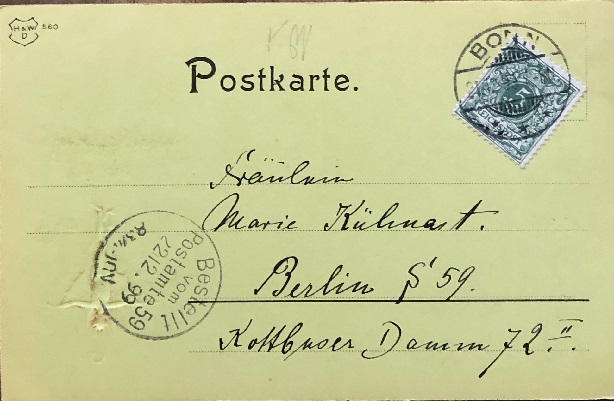 H&W
D
560
Postkarte.
BONN
Fräulein
Marie Kühnast.
Berlin S 59.
Kottbuser Damm 72 II.
Bestellt
vom
Postamte 59
22/2.99